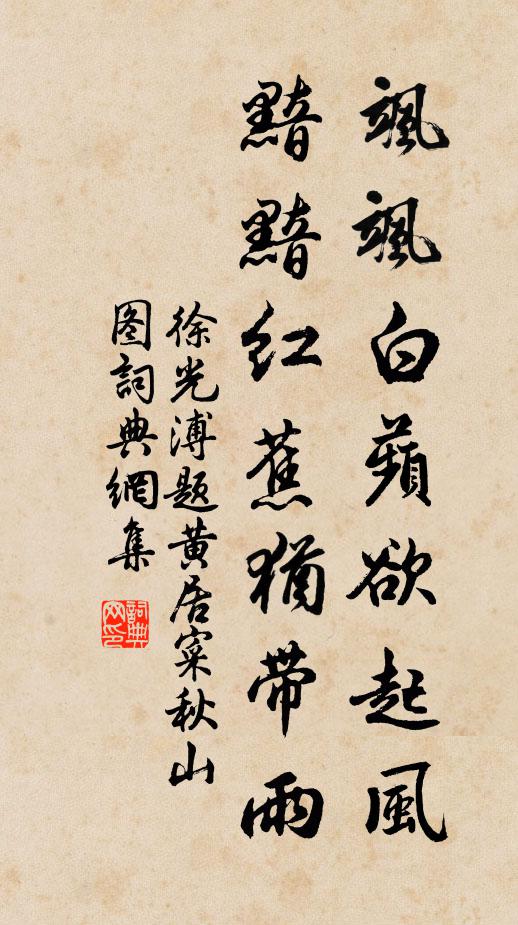 颯颯白蘋欲起風
黯黯紅蕉猶帶雨
徐光溥题黄居寀秋山
图詞典網集
詞典网印